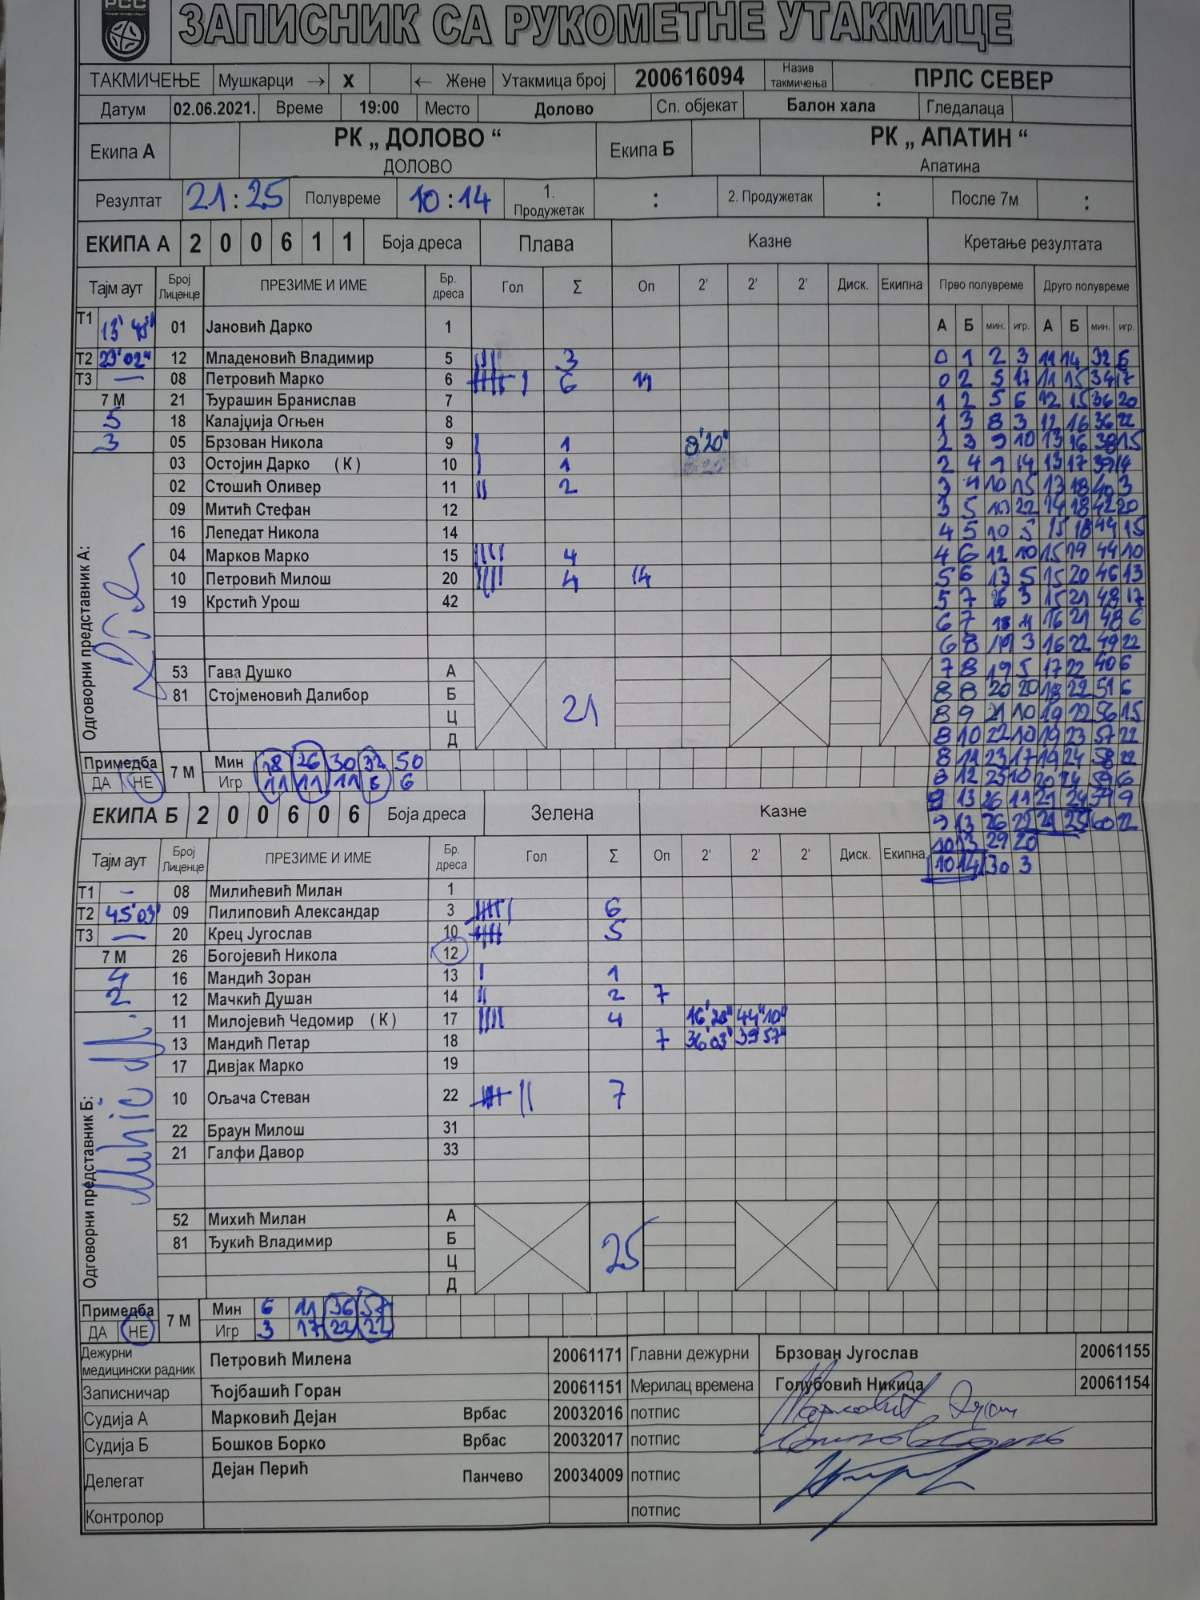 РСС
ЗАПИСНИК СА РУКОМЕТНЕ УТАКМИЦЕ
ТАКМИЧЕЊЕ Мушкарци → X ← Жене Утакмица број 200616094 Назив такмичења ПРЛС СЕВЕР
Датум 02.06.2021. Време 19:00 Место Долово Сп. објекат Балон хала Гледалаца
Екипа А РК „ ДОЛОВО “ Екипа Б РК „ АПАТИН “
ДОЛОВО Апатина
Резултат 21:25 Полувреме 10:14 1. Продужетак : 2. Продужетак : После 7м :
ЕКИПА А 2 0 0 6 1 1 Боја дреса Плава Казне Кретање резултата
Тајм аут Број Лиценце ПРЕЗИМЕ И ИМЕ Бр. дреса Гол Σ Оп 2' 2' 2' Диск. Екипна Прво полувреме Друго полувреме
А Б мин. игр. А Б мин. игр.
Т1 01 Јановић Дарко 1
Т2 23'02" 12 Младеновић Владимир 5 3 0 1 2 3 11 14 32 6
Т3 — 08 Петровић Марко 6 6 11 0 2 5 17 11 15 34 17
7 М 21 Ђурашин Бранислав 7 1 2 5 6 12 15 36 20
5 18 Калајџија Огњен 8 1 3 8 3 12 16 36 22
3 05 Брзован Никола 9 1 8'20" 2 3 9 10 13 16 38 15
03 Остојин Дарко ( К ) 10 1 2 4 9 14 13 17 39 14
02 Стошић Оливер 11 2 3 4 10 15 13 18 40 3
09 Митић Стефан 12 3 5 10 22 14 18 42 20
16 Лепедат Никола 14 4 5 10 5 15 18 44 15
04 Марков Марко 15 4 4 6 12 10 15 19 44 10
10 Петровић Милош 20 4 14 5 6 13 5 15 20 46 13
19 Крстић Урош 42 5 7 16 3 15 21 48 17
6 7 18 11 16 21 48 6
6 8 19 3 16 22 49 22
53 Гава Душко А 7 8 19 5 17 22 6
81 Стојменовић Далибор Б 21 8 8 20 20 18 22 51 6
Ц 8 9 21 10 19 22 56 15
Д 8 10 22 10 19 23 57 22
Одговорни представник А:
Примедба ДА НЕ 7 М Мин 18 26 30 32 50 8 11 23 17 19 24 58 22
Игр 11 11 11 6 6 8 12 25 10 20 24 59 6
ЕКИПА Б 2 0 0 6 0 6 Боја дреса Зелена Казне 9 13 26 11 21 24 59 9
9 13 26 22 21 25 60 22
10 13 29 20
Тајм аут Број Лиценце ПРЕЗИМЕ И ИМЕ Бр. дреса Гол Σ Оп 2' 2' 2' Диск. Екипна 10 14 30 3
Т1 – 08 Милићевић Милан 1
Т2 45'03" 09 Пилиповић Александар 3 6
Т3 — 20 Крец Југослав 10 5
7 М 26 Богојевић Никола 12
4 16 Мандић Зоран 13 1
2 12 Мачкић Душан 14 2 7
11 Милојевић Чедомир ( К ) 17 4 16'28" 44'10"
13 Мандић Петар 18 7 36'03" 39'57"
17 Дивјак Марко 19
10 Ољача Стеван 22 7
22 Браун Милош 31
21 Галфи Давор 33
52 Михић Милан А
81 Ђукић Владимир Б 25
Ц
Д
Одговорни представник Б:
Примедба ДА НЕ 7 М Мин 6 11 36 57
Игр 3 17 22 22
Дежурни медицински радник Петровић Милена 20061171 Главни дежурни Брзован Југослав 20061155
Записничар Ћојбашић Горан 20061151 Мерилац времена Голубовић Никица 20061154
Судија А Марковић Дејан Врбас 20032016 потпис
Судија Б Бошков Борко Врбас 20032017 потпис
Делегат Дејан Перић Панчево 20034009 потпис
Контролор потпис